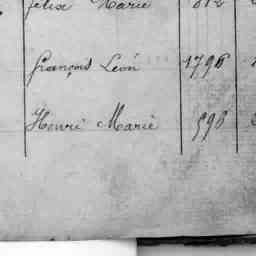 felix Marie 812
françois Léon 1796
Henri Marie 598